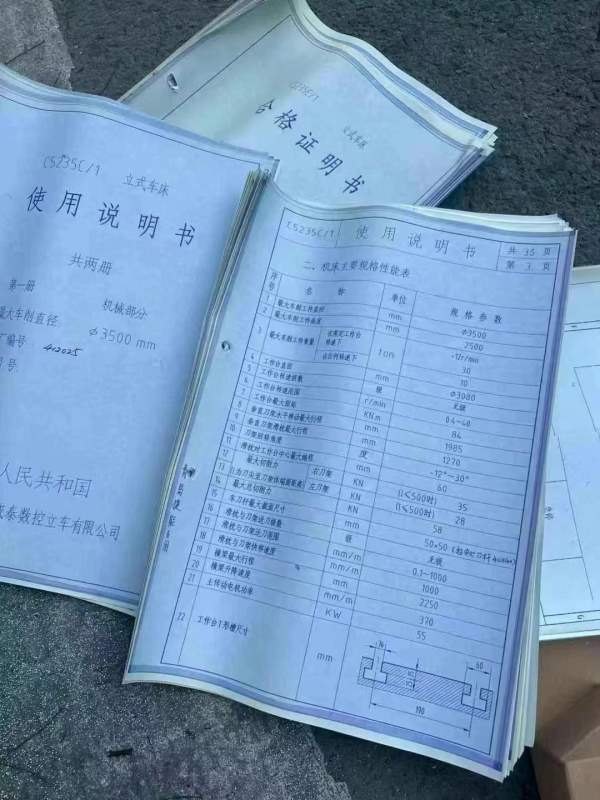 C5235C/1
立式车床
合格证明书
C5235C/1 立式车床
使用说明书
共两册
第一册 机械部分
最大车削直径 Φ3500 mm
编号 412025
号
人民共和国
泰数控立车有限公司
C5235C/1 使用说明书 共 35 页
第 3 页
二、机床主要规格性能表
序号 名称 单位 规格参数
1 最大车削工件直径 mm Φ3500
2 最大车削工件高度 mm 2500
3 最大车削工件重量 ton
转速下 30
转速下 10
4 工作台直径 mm Φ3080
5 工作台转速级数 级 无级
6 工作台转速范围 r/min 0.4~40
7 工作台最大扭矩 KNm 84
8 垂直刀架水平移动最大行程 mm 1985
9 垂直刀架滑枕最大行程 mm 1270
10 刀架回转角度 度 -12°~30°
11 滑枕对工作台中心最大越程 mm 60
12 最大切削力 右刀架 KN (l≤500时) 35
13 左刀架 KN (l≤500时) 28
14 最大总切削力 KN 58
15 车刀杆最大截面尺寸 mm 50×50
16 滑枕与刀架进刀级数 级 无级
17 滑枕与刀架进刀范围 mm/m 0.1~1000
18 滑枕与刀架快移速度 mm/m 1000
19 横梁最大行程 mm 2250
20 横梁升降速度 mm/m 370
21 主传动电机功率 KW 55
22 工作台T形槽尺寸 mm
60
190